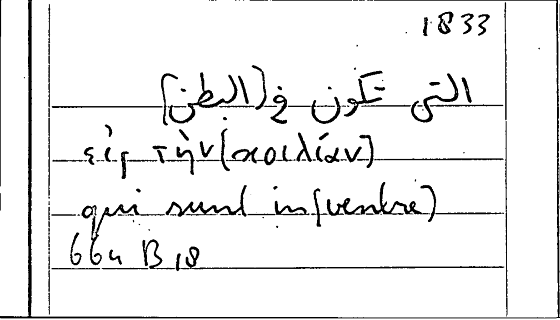 1833
التى تكون فى (البطن)
εἰς τὴν (κοιλίαν)
qui sunt in (ventre)
664 B 18